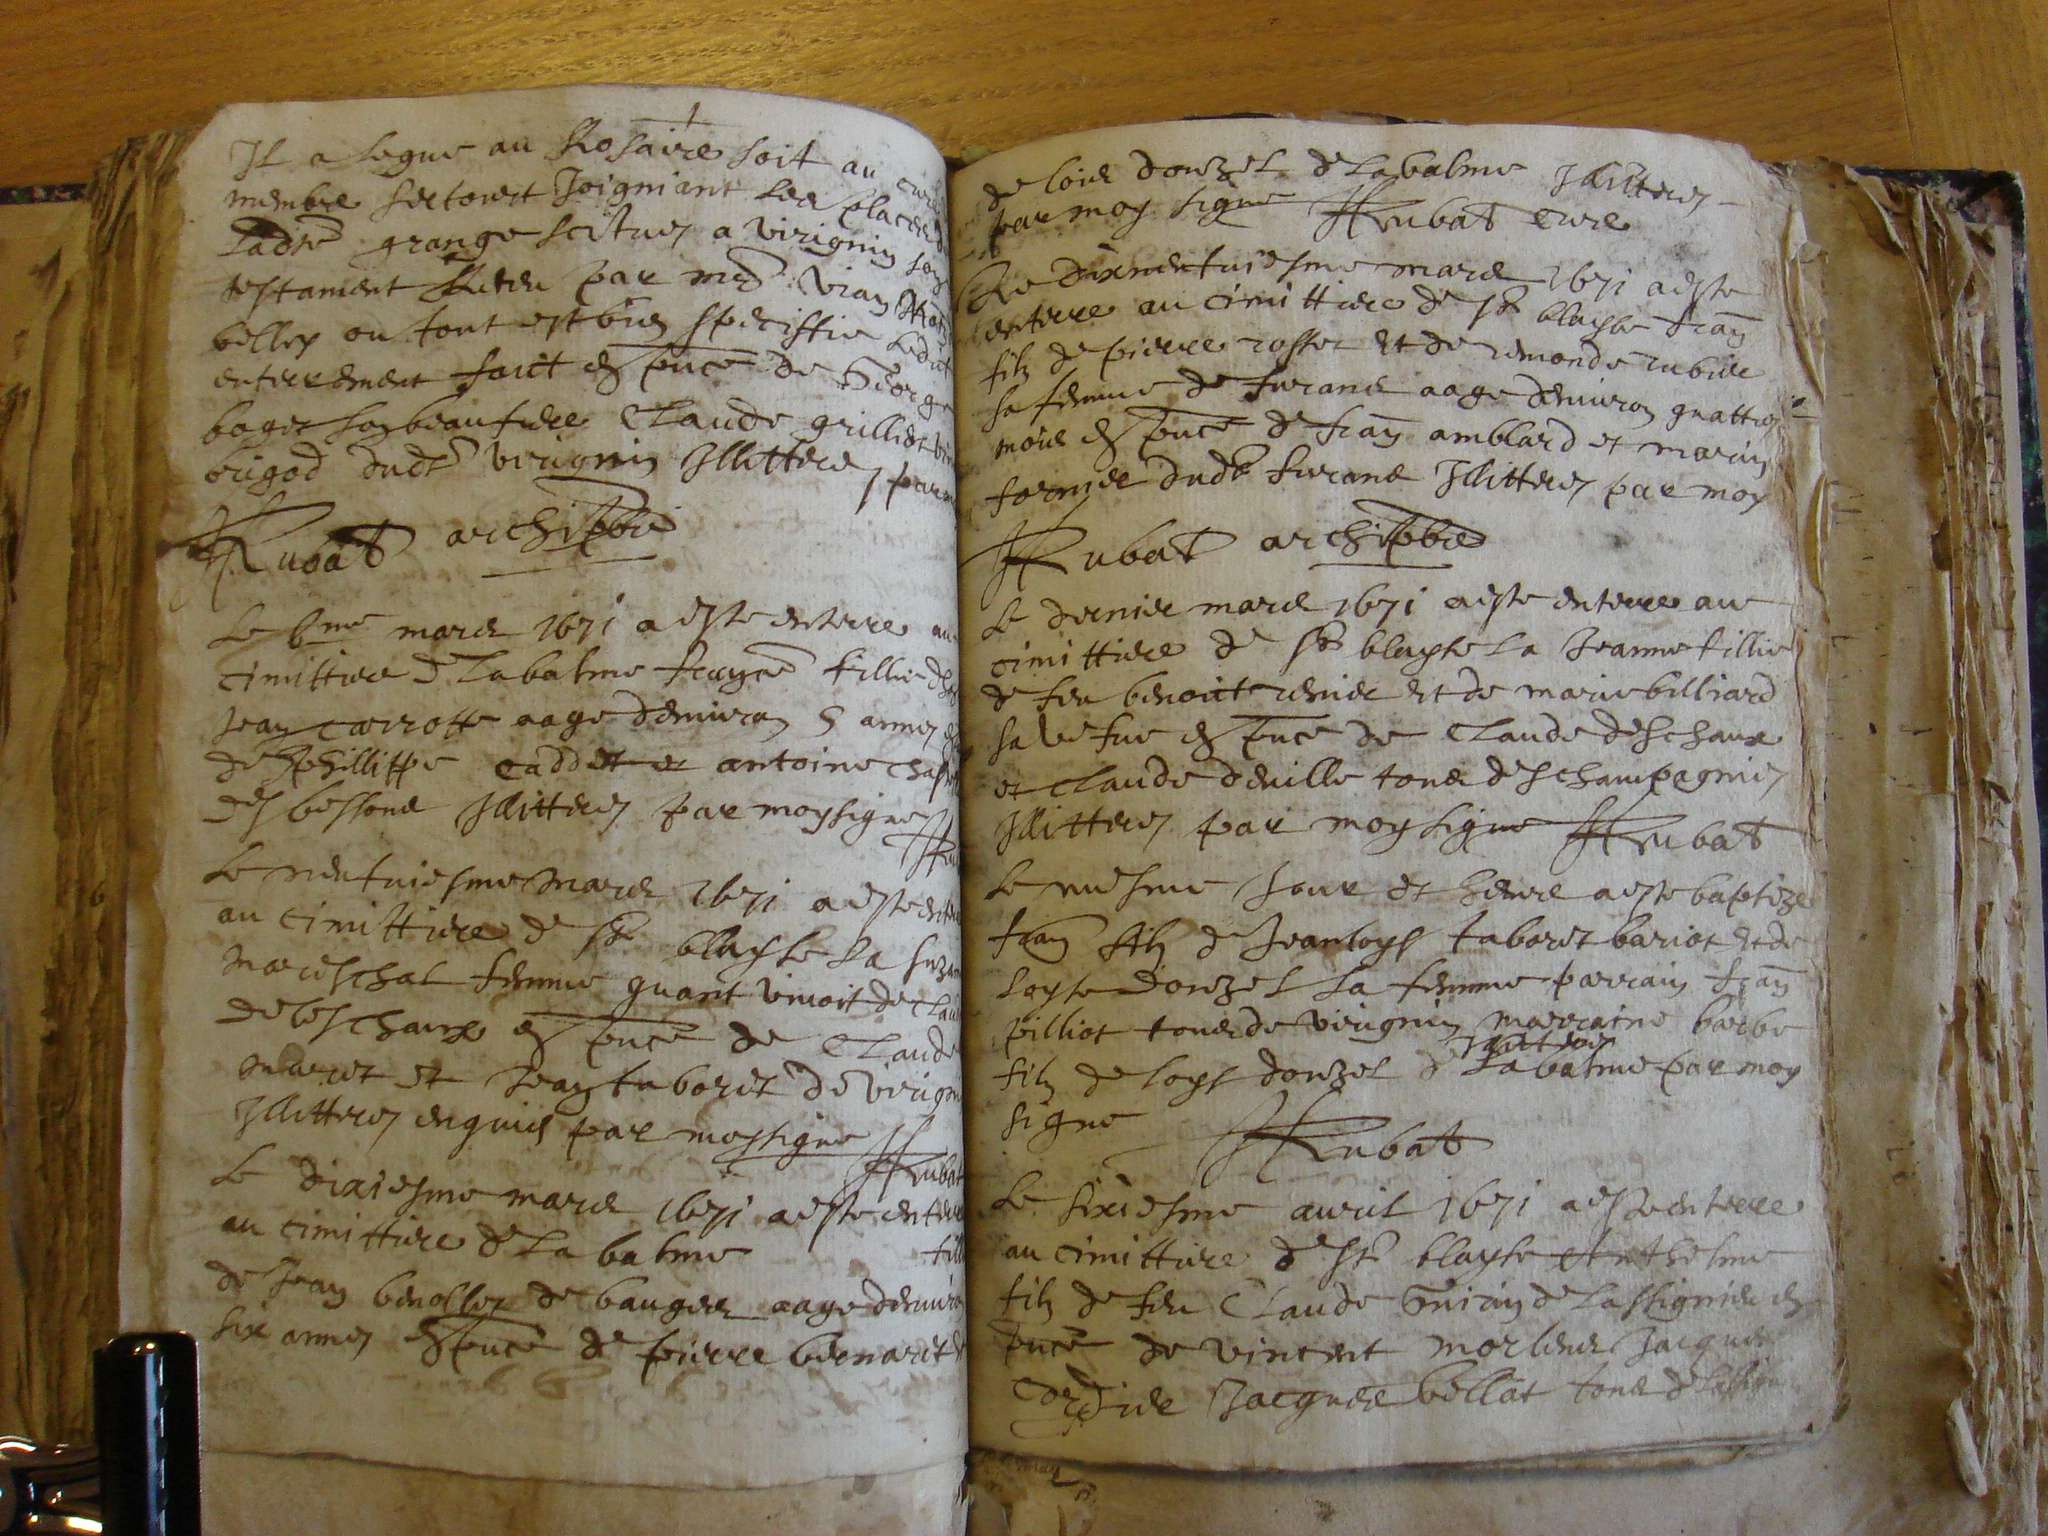 Il a legue au Rosaire soit au cure
membre sertouet Joigniant les places d
ladte grange scitues a virignin son
testament Receu par me vian not
belley ou tout est bien speciffie ledit
enterement faict en pnce de George
boget son beaufrere Claude grilliet
brigod dudt virignin Illitteres par m
Rubat archipbre
Le 6me mars 1671 a este enterre au
cimittiere de labalme franse fillie de
Jean carrotte aage denviron 5 annes en
de phillippe caddet et antoine
des bessons Illitteres par moy signe
Rub
Le neufviesme mars 1671 a este enterre
au cimittiere de st blayse la suzan
mareschal femme quant vivoit de Clau
de leschaux en pnce de Claude
maret et Jean taboret de virign
Illitteres enquis par moy signe Rubat
Le dixiesme mars 1671 a este enterre
au cimittiere de la balme fill
de Jean benollet de bauges aage denviro
six annes en pnce de pierre bernaret
de lois donzel de labalme Illitteres
par moy signe Rubat cure
Le dixneufviesme mars 1671 a este
enterre au cimittiere de st blayse fran
filz de pierre rosset et de remonde rubier
sa femme de furans aage denviron quattre
mois en pnce de fran amblard et marin
fornier dudt furans Illitteres par moy
Rubat archipbre
Le dernier mars 1671 a este enterre au
cimittiere de st blayse la Jeanne fillie
de feu benoict renier et de marie billiard
sa vefue en pnce de Claude deschaux
et Claude deville tous de schampagnie
Illitteres par moy signe Rubat
Le mesme jour et heure a este baptize
fran filz de Jean loys taboret bariot et de
loyse donzel sa femme parrain fran
pilliot tous de virignin marraine barbe
Illitteres
filz de loys donzel de labalme par moy
signe Rubat
Le sixiesme avril 1671 a este enterre
au cimittiere de st blayse Anthesme
filz de feu Claude Guian de lassignieu en
pnce de vincent Jacques
Jacques bellat tous de lassign